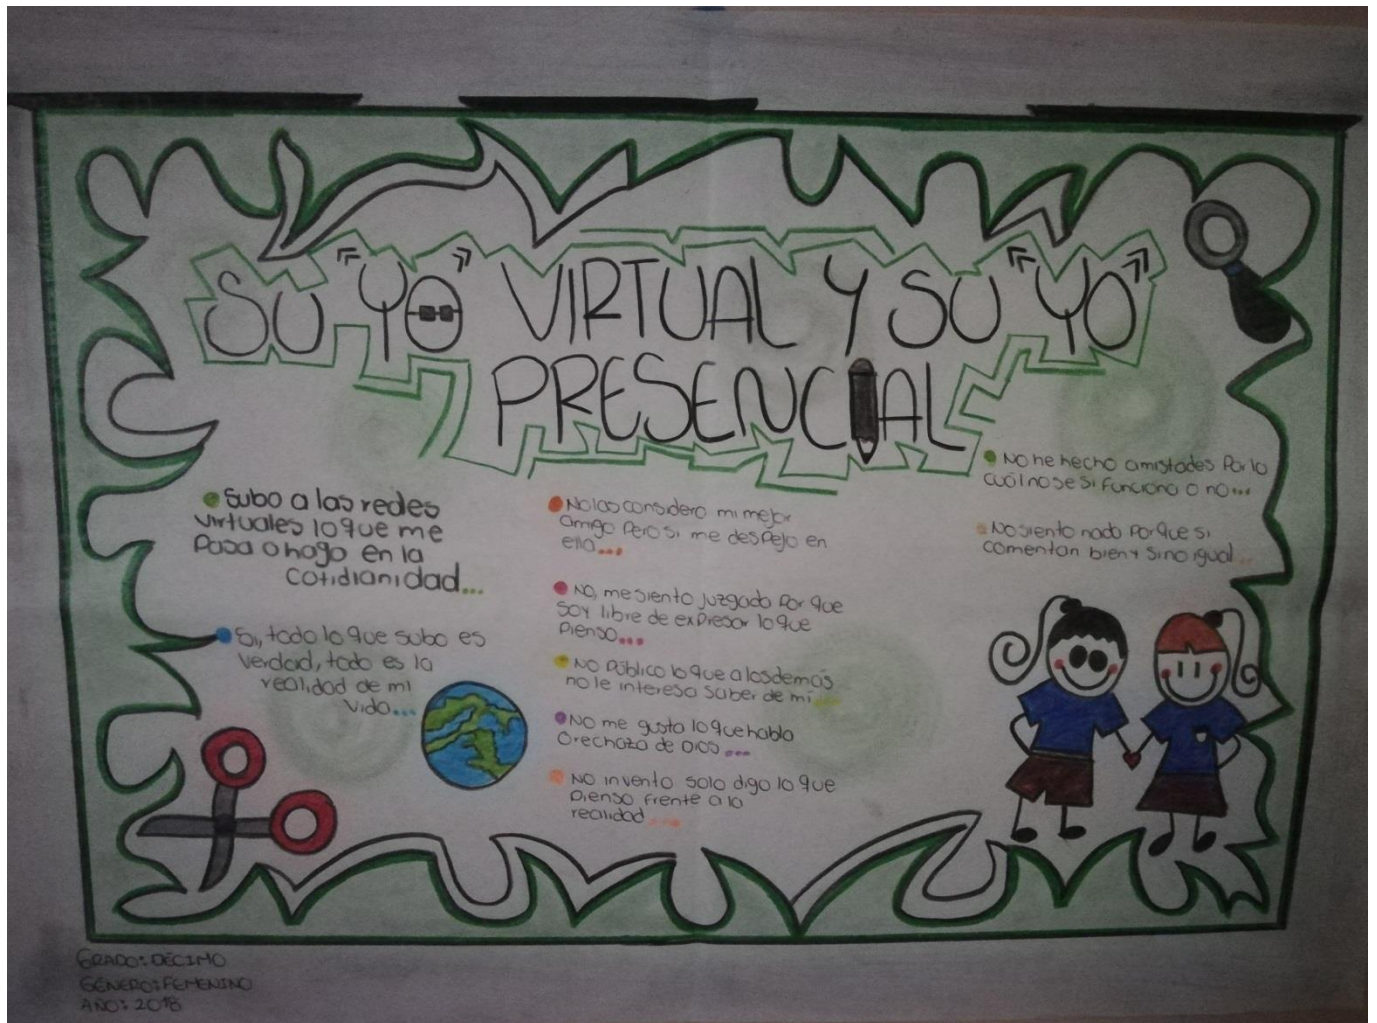 SU "YO" VIRTUAL Y SU "YO"
PRESENCIAL
Subo a las redes
virtuales lo que me
pasa o hago en la
cotidianidad...
Si, todo lo que subo es
verdad, todo es la
realidad de mi
vida...
No las considero mi mejor
amigo pero si me despejo en
ella...
No, me siento juzgado por que
soy libre de expresar lo que
pienso...
No público lo que a los demás
no le interesa saber de mi...
No me gusta lo que habla
O rechaza de Dios...
No invento solo digo lo que
pienso frente a la
realidad...
No he hecho amistades por lo
cuál no se si funciona o no...
No siento nada porque si
comentan bien y sino igual...
GRADO: DÉCIMO
GÉNERO: FEMENINO
AÑO: 2018